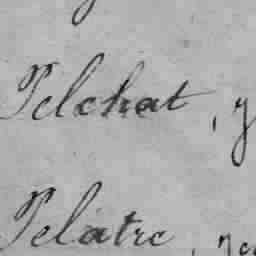 Pelchat, y
Pelatre, ye